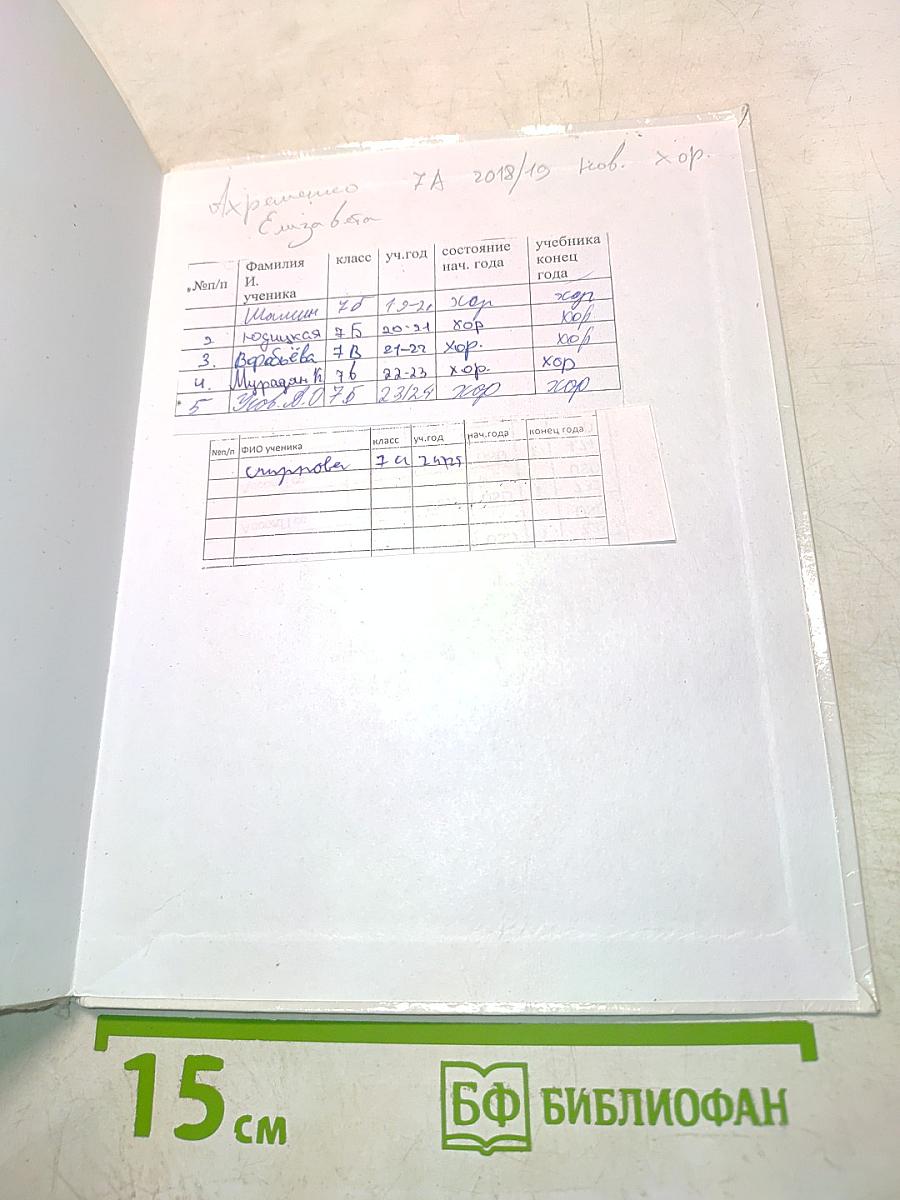 Ахременко 7А 2018/19 Нов. хор.
Елизавета
№п/п Фамилия И. ученика класс уч.год состояние нач. года учебника конец года
Шамин 7б 19-20 хор хор
2 Юдицкая 7Б 20-21 хор хор
3. Воробьёва 7В 21-22 хор. хор
4. Мурадян К 7в 22-23 хор. хор
5 Усов А.О 7Б 23/24 хор хор
№п/п ФИО ученика класс уч.год нач.года конец года
Смирнова 7 24/25
15 см
БФ БИБЛИОФАН